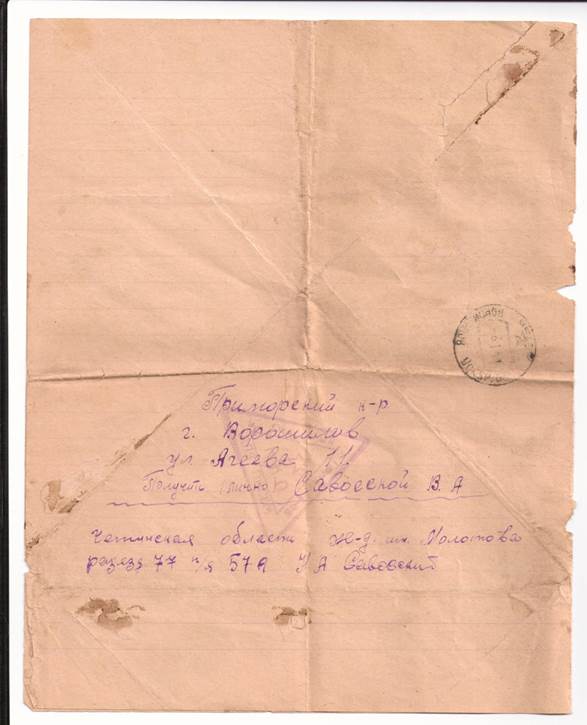 Приморский к-р
г. Ворошилов
ул Агеева 11.
Получить лично Савоеской В. А
Читинская области ж-д. им. Молотова
разъезд 77 п/я 57а А Савоеский